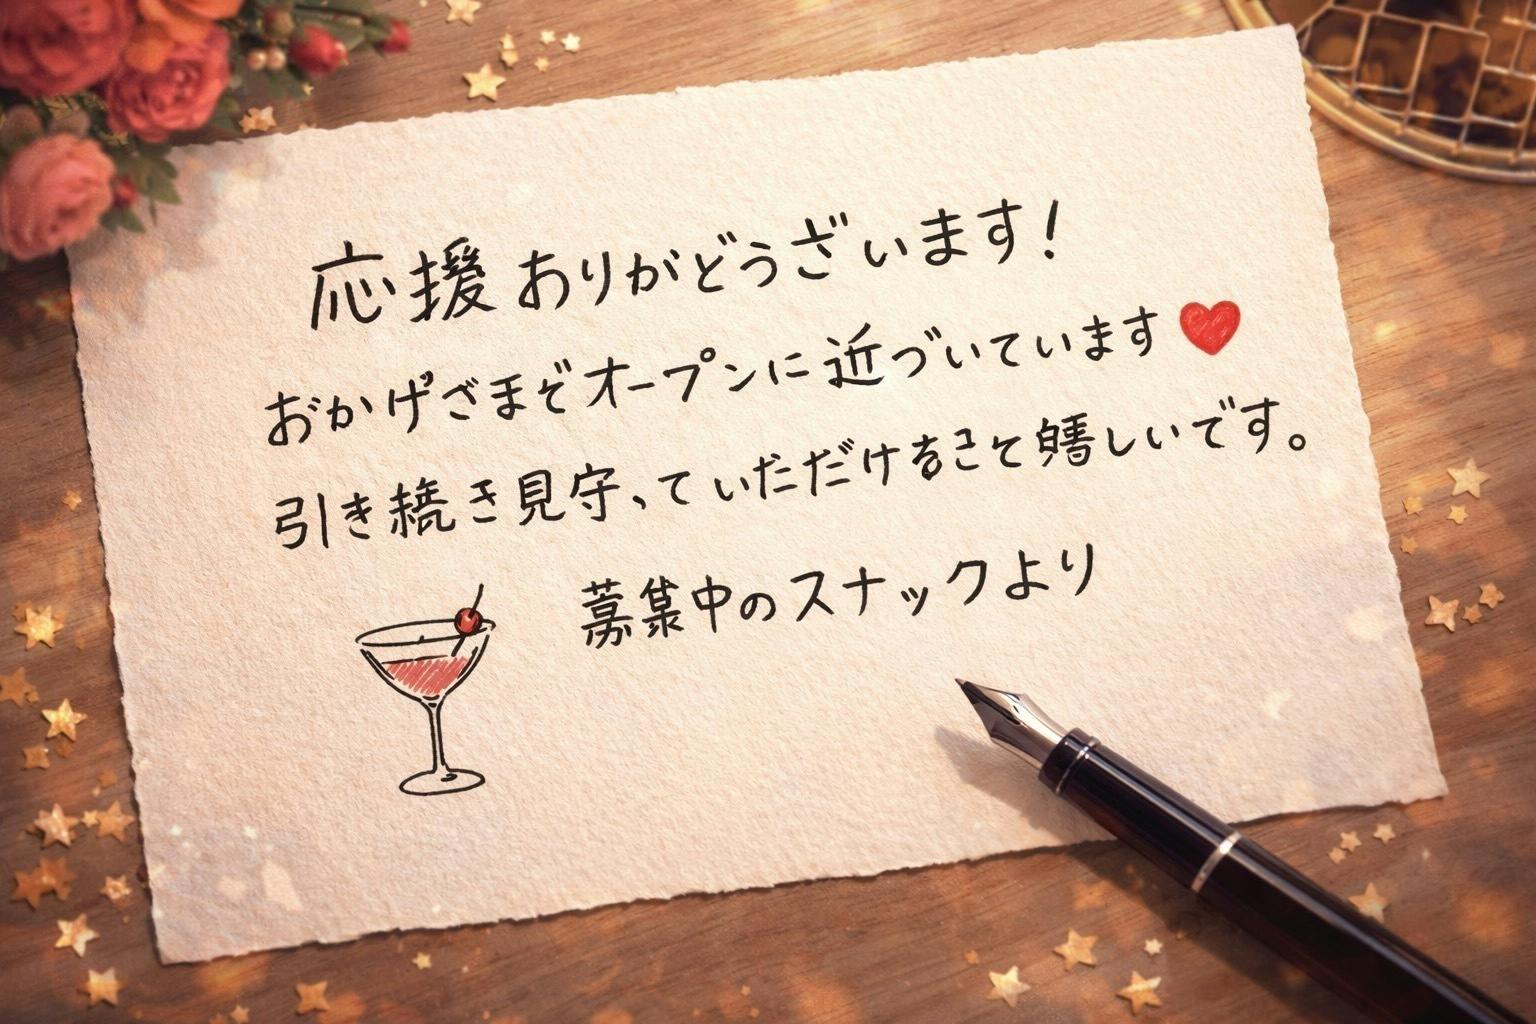 応援ありがどうございます!
おかげざまぞオープンに近づいています❤
引き続き見守、ていただけるこて嬉しいです。
募集中のスナックより